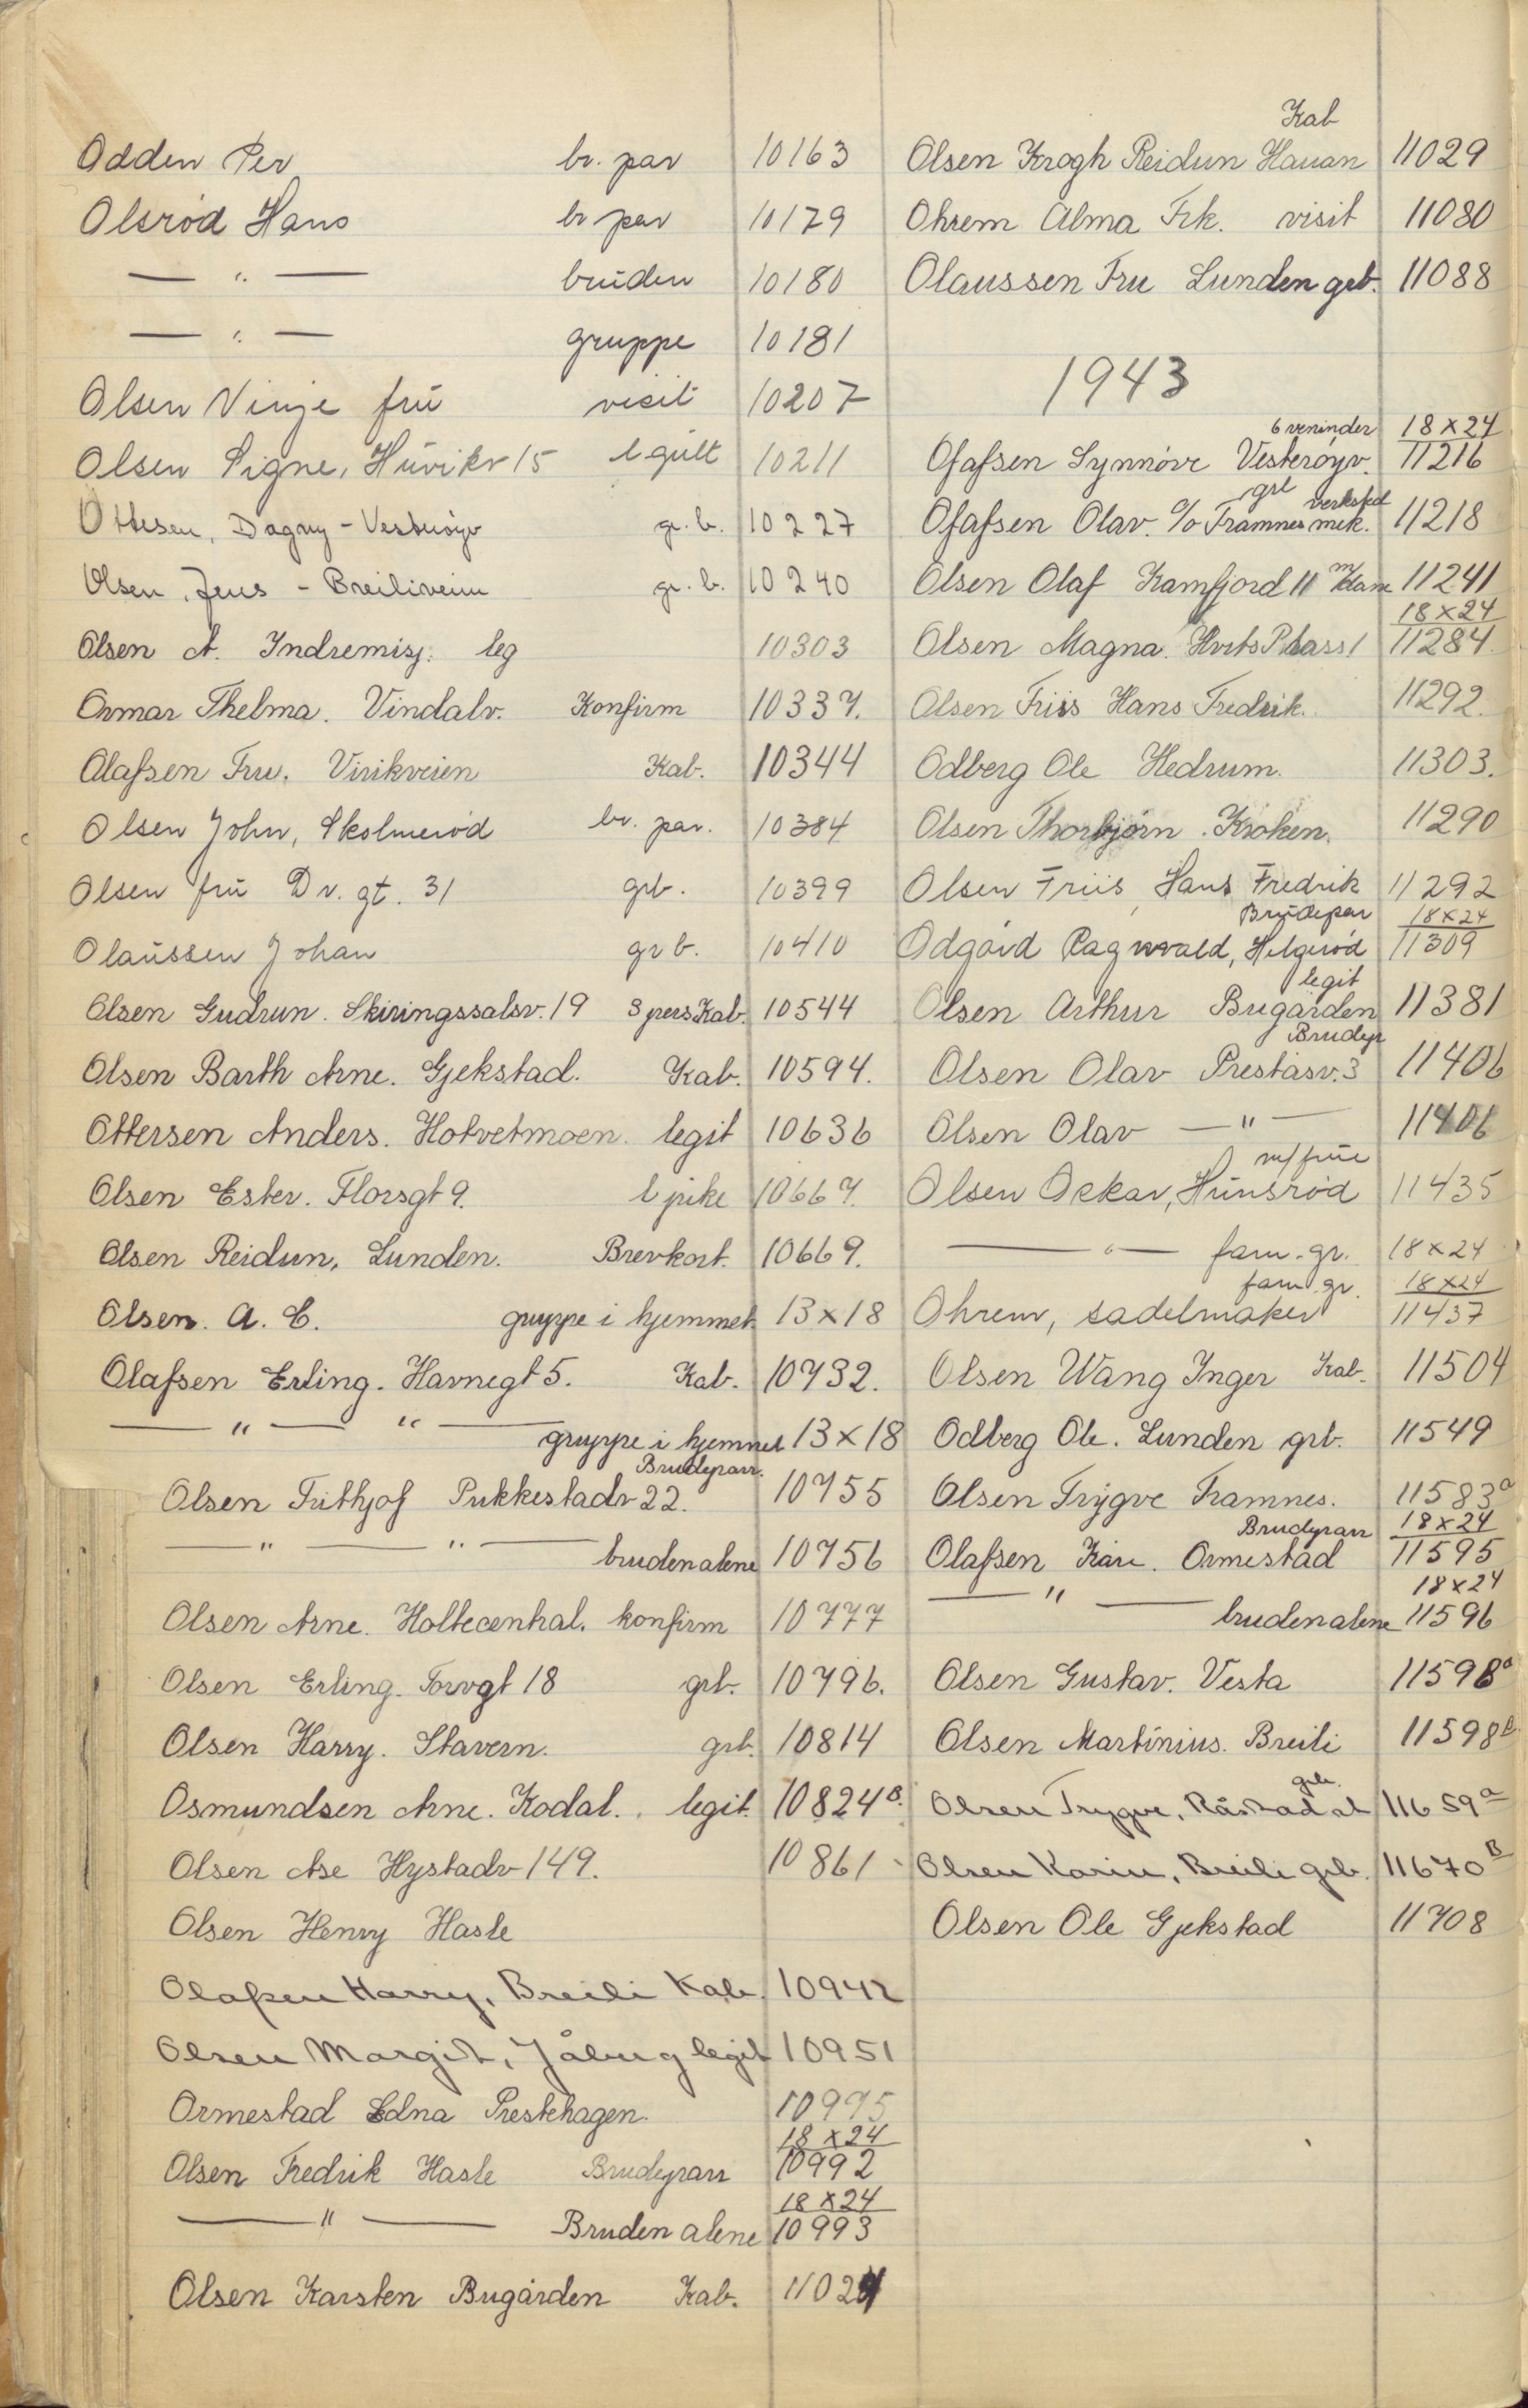 Odden Per br. par 10163
Olsrød Hans br par 10179
— " — bruden 10180
— " — gruppe 10181
Olsen Vinje frü visit 10207
Olsen Signe, Hüvikv 15 legitt 10211
Ottesen, Dagny - Vesterøyv gr. b. 10227
Olsen, Jens - Breiliveien gr. b. 10240
Olsen A. Indremisj. leg 10303
Ormar Thelma. Vindalv. Konfirm 10337.
Olafsen Fru. Virikveien Kab. 10344
Olsen John, Skolmerød br. par. 10384
Olsen frü Dr. gt. 31 grb. 10399
Olaüssen Johan grb. 10410
Olsen Gudrun. Skiringssalsv. 19 3 pers Kab. 10544
Olsen Barth Arne. Gjekstad. Kab. 10594.
Ottersen Anders. Hotvetmoen. legit 10636
Olsen Ester. Florsgt 9. l pike 10667.
Olsen Reidun, Lunden. Brevkort. 10669.
Olsen. A. C. gruppe i hjemmet 13x18
Olafsen Erling. Havnegt 5. Kab. 10732.
— " — " — gruppe i hjemmet 13x18
Brudeparr.
Olsen Frithjof Pukkestadv 22. 10755
— " — " — bruden alene 10756
Olsen Arne. Holtecentral. konfirm 10777
Olsen Erling. Torvgt 18 grb. 10796.
Olsen Harry. Stavern. grb. 10814
Osmundsen Arne. Kodal. legit. 10824 B.
Olsen Åse Hystadv 149. 10861
Olsen Henry Hasle
Olafsen Harry, Breili Kab. 10942
Olsen Margit, Jåberg legit 10951
Ormestad Edna Prestehagen. 10995
18x24
Olsen Fredrik Hasle Brudeparr 10992
18x24
— " — Bruden alene 10993
Olsen Karsten Bugården Kab. 11024
Kab
Olsen Krogh Reidun Hauan 11029
Ohrem Alma Frk. visit 11080
Olaussen Fru Lunden grb. 11088
1943
6 veninder 18x24
Olafsen Synnøve Vesterøyv. 11216
grl verksted
Olafsen Olav. c/o Framnes mek. 11218
Olsen Olaf Kamfjord 11 m/dame 11241
18x24
Olsen Magna. Hvits Plass 1 11284.
Olsen Friis Hans Fredrik. 11292.
Odberg Ole Hedrum. 11303.
Olsen Thorbjørn. Kroken. 11290
Olsen Friis, Hans Fredrik 11292
Brüdepar 18x24
Odgård Ragnvald, Helgerød 11309
legit
Olsen Arthur Bugården 11381
Brudep
Olsen Olav Prestasv. 3 11406
Olsen Olav — " — 11406
m/früe
Olsen Oskar, Hünsrød 11435
— " — fam. gr. 18x24
fam. gr. 18x24
Ohrem, sadelmaker 11437
Olsen Wang Inger Kab. 11504
Odberg Ole. Lunden grb. 11549
Olsen Trygve Framnes. 11583 a
Brudeparr 18x24
Olafsen Kåre. Ormestad 11595
18x24
— " — bruden alene 11596
Olsen Gustav. Vesta 11598 a
Olsen Martinius. Breili 11598 b.
grb.
Olsen Trygve, Råstad st 11659 a
Olsen Karin, Breili grb. 11670 B
Olsen Ole Gjekstad 11708